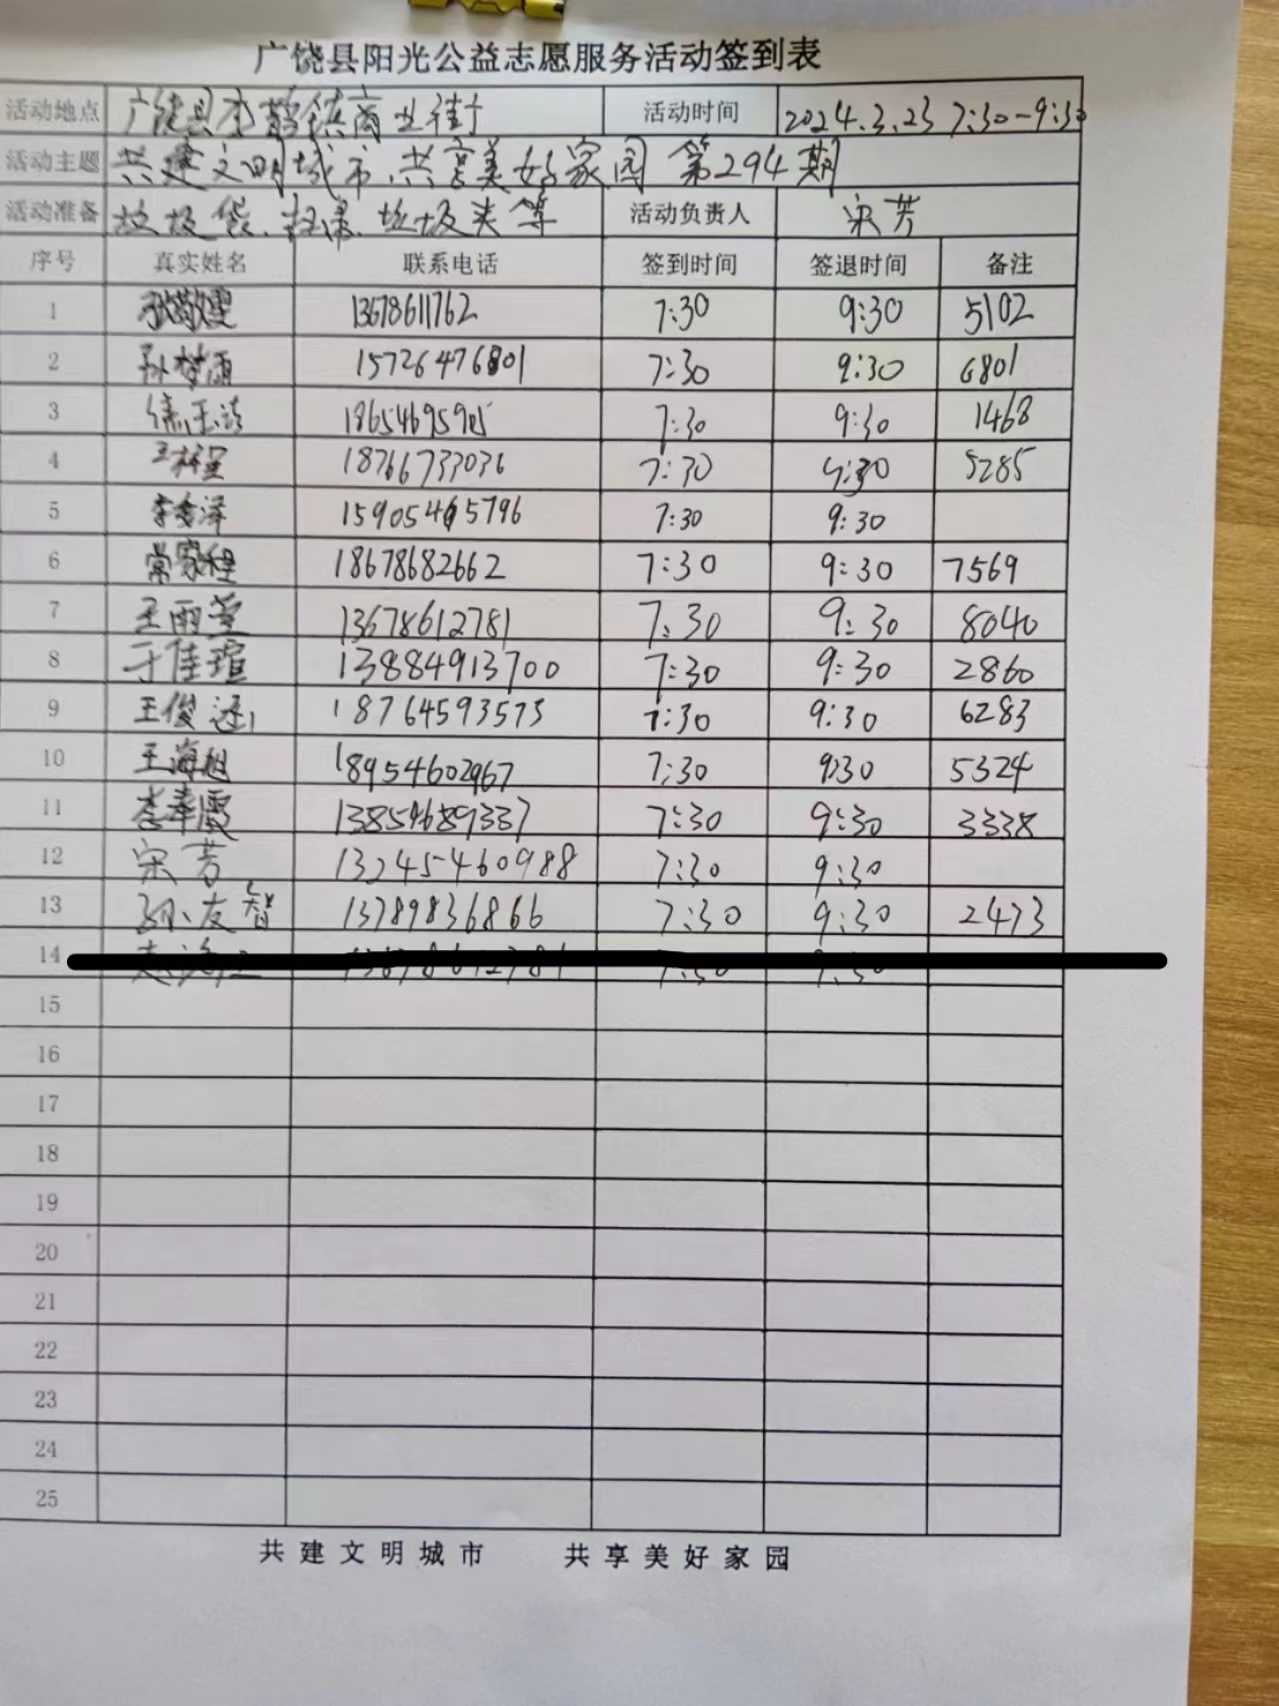 广饶县阳光公益志愿服务活动签到表
活动地点 广饶县李鹊镇商业街 活动时间 2024.3.23 7:30-9:30
活动主题 共建文明城市、共享美好家园 第294期
活动准备 垃圾袋、扫帚、垃圾夹等 活动负责人 宋芳
序号 真实姓名 联系电话 签到时间 签退时间 备注
1 13678611762 7:30 9:30 5102
2 孙梦雨 15726476801 7:30 9:30 6801
3 徐玉洁 18654695905 7:30 9:30 1468
4 18766733036 7:30 9:30 5285
5 15905465796 7:30 9:30
6 常家程 18678682662 7:30 9:30 7569
7 王雨萱 13678612781 7:30 9:30 8040
8 于佳瑄 13884913700 7:30 9:30 2860
9 王俊 18764593573 7:30 9:30 6283
10 王海旭 18954602967 7:30 9:30 5324
11 李奉霞 13854689337 7:30 9:30 3338
12 宋芳 13245460988 7:30 9:30
13 孙友智 13789836866 7:30 9:30 2473
14
15
16
17
18
19
20
21
22
23
24
25
共建文明城市 共享美好家园